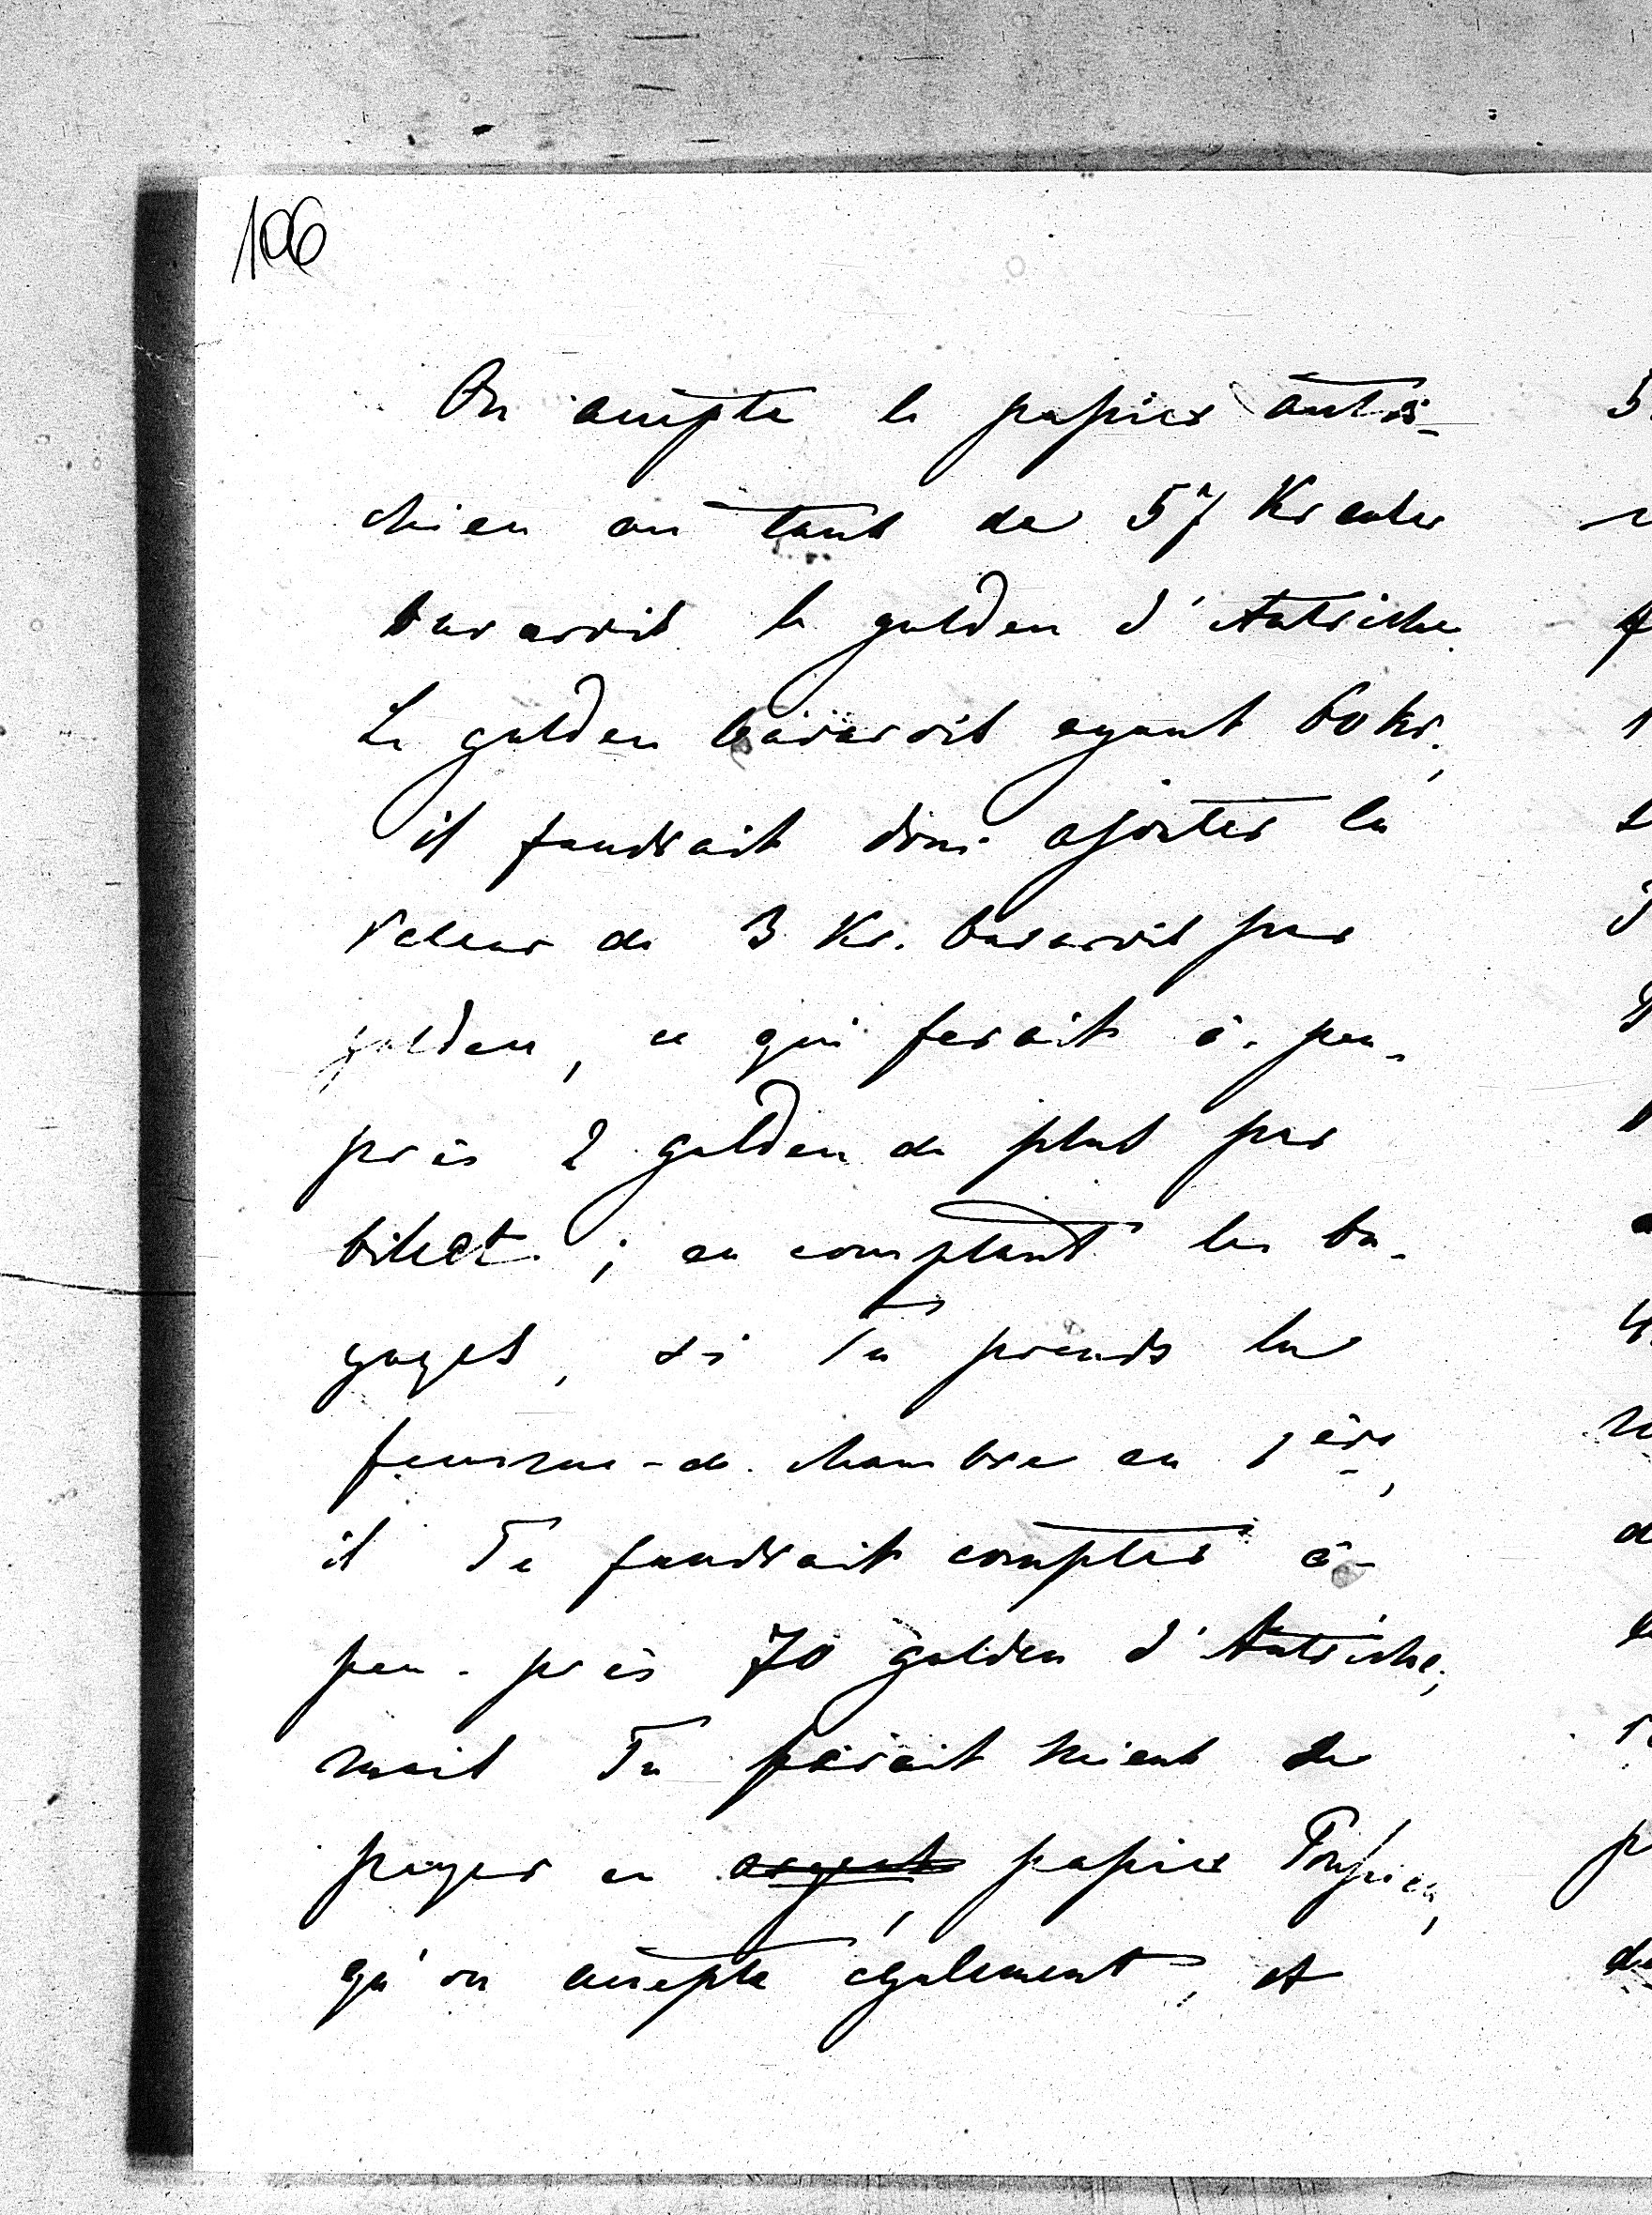 106
On accepte le papier autri-
chien au taux de 57 Kreutzer
bavarois le gulden d'Autriche.
Le gulden bavarois ayant 60 kr.,
il faudrait donc ajouter la
valeur de 3 Kr. bavarois par
gulden, ce qui ferait à-peu-
près 2 gulden de plus par
billet ; en comptant les ba-
gages, si Tu prends la
femme-de-chambre en 1ère,
il Te faudrait compter à-
peu-près 70 gulden d'Autriche;
mais Tu ferais mieux de
payer en argent, papier Prussien,
qu'on accepte également, et